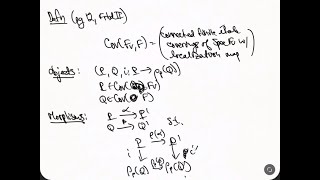 Defn (pg 12,
Cov(Fv, F) = (connected finite étale
coverings of Spec Fv w/
localization map)
Objects: (P, Q, i: P → ρv(Q))
P ∈ Cov(Fv)
Q ∈ Cov(F)
Morphisms: P α→ P' s.t.
Q β→ Q'
P → P'
i ↓ ↓ i'
ρv(Q) → ρv(Q')